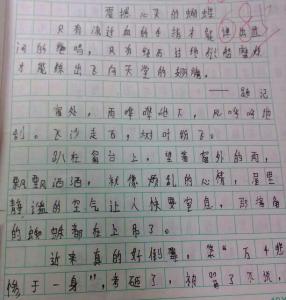 震撼心灵的蝴蝶
只有流过血的手指才能弹出世
间的绝唱，只有经历过地狱般磨难
才能练出飞向天堂的翅膀。
——题记
窗外，雨哗哗地下，风呼呼地
刮。飞沙走石，树叶纷飞。
趴在窗台上，望着窗外的雨，
飘飘洒洒，就像烦乱的心情，屋里
静谧的空气让人快要窒息，
的蜘蛛都在上吊了。
近来真的好倒霉，集“万千悲
惨于一身”，考砸了，被骂了不说，